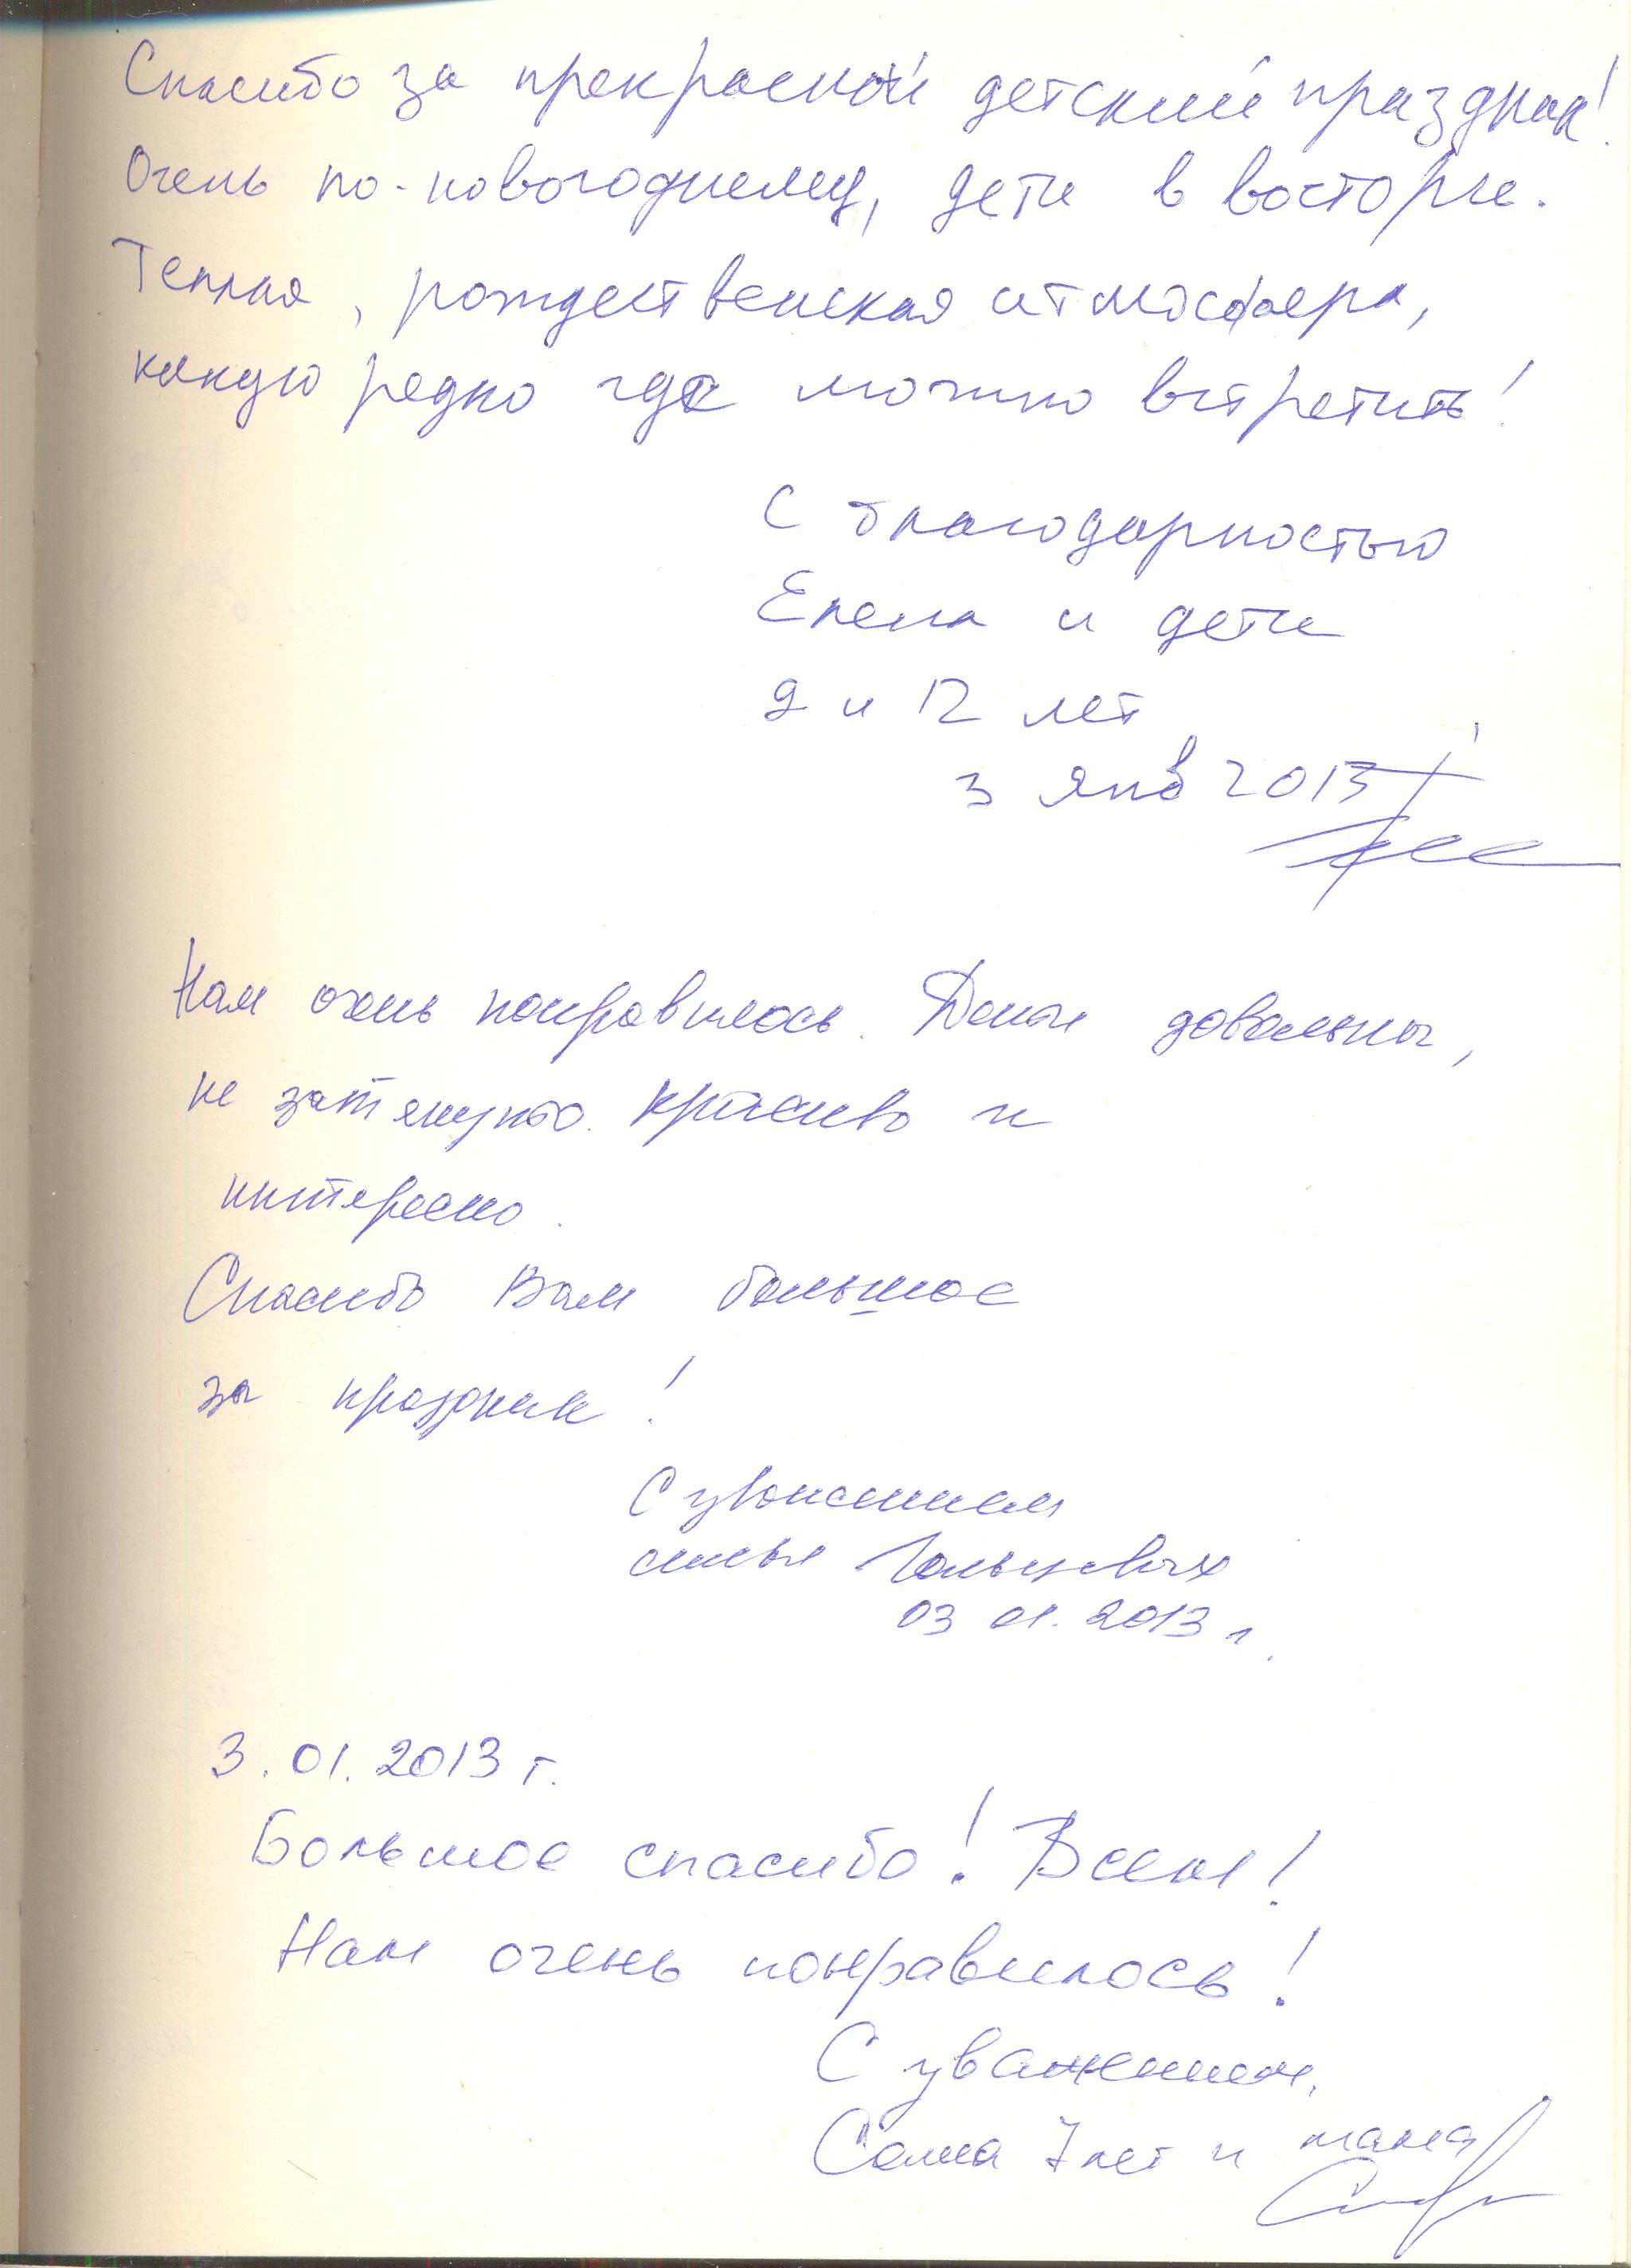 Спасибо за прекрасный детский праздник!
Очень по-новогоднему, дети в восторге.
Теплая, рождественская атмосфера,
какую редко где можно встретить!
С благодарностью
Елена и дети
9 и 12 лет
3 янв 2013
Нам очень понравилось. Дети довольны,
не затянуто. Красиво и
интересно.
Спасибо Вам большое
за праздник!
С уважением
семья
03 01. 2013 г.
3. 01. 2013 г.
Большое спасибо! Всем!
Нам очень понравилось!
С уважением,
Саша 7 лет и мама